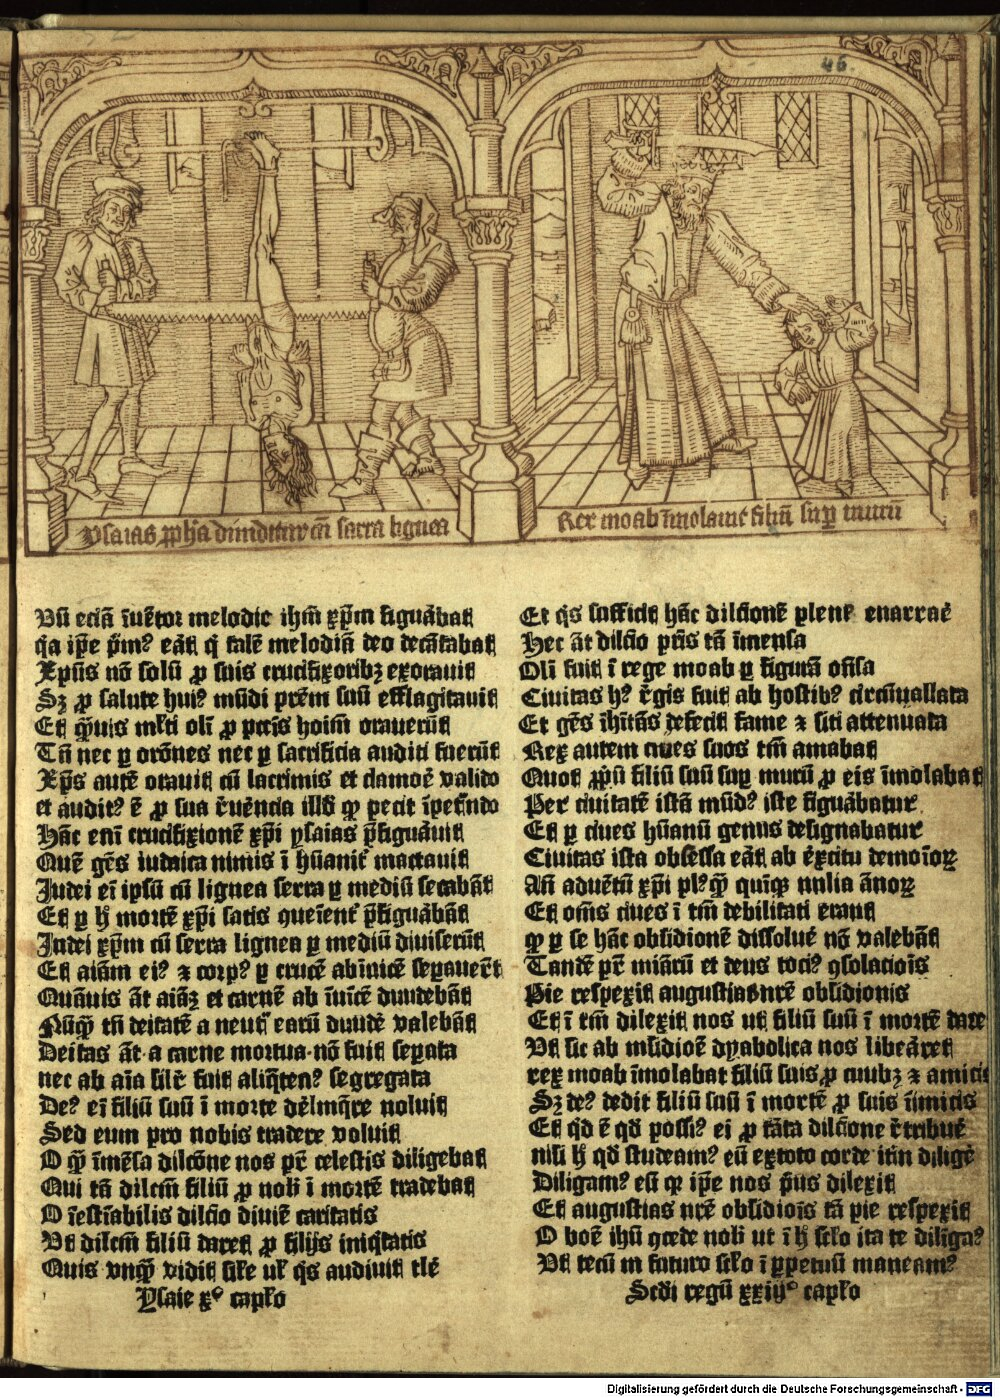 46.
ysaias ꝓph̄a diuiditur cū serra lignea
Rex moab īmolauit filiū suꝑ murū
Vn̄ eciā īuētor melodie ihm̄ xp̄m figurabat
q̄a ip̄e p̄m⁹ erat q̄ talē melodiā deo decātabat
Xp̄us nō solū ꝓ suis crucifixoribꝫ exorauit
Sꝫ ꝓ salute hui⁹ mūdi pr̄em suū efflagitauit
Et q̄uis ml̄ti olī ꝓ pctīs hoīm orauerūt
Tn̄ nec ꝑ orōnes nec ꝑ sacrificia auditi fuerūt
Xp̄s autē orauit cū lacrimis et clamoē valido
et audit⁹ ē ꝓ sua r̄uēncia illd̄ qd̄ petit īpetrādo
Hāc eni crucifixionē xp̄i ysaias p̄figurauit
Quē gēs iudaica nimis ī hūanit̄ mactauit
Judei ei ip̄sū cū lignea serra ꝑ mediū secabāt
Et ꝑ h̄ mortē xp̄i satis p̄figurabāt
Judei xp̄m cū serra lignea ꝑ mediū diuiserūt
Et aīam ei⁹ ⁊ corp⁹ ꝑ crucē abinuicē sepauer̄t
Quāuis āt aīaꝫ et carnē ab īuicē diuidebāt
Nūq̄ tn̄ deitatē a neutra earū diuidē valebāt
Deitas āt a carne mortua nō fuit sepata
nec ab aīa sil̄r fuit aliq̄ten⁹ segregata
De⁹ eī filiū suū ī morte delinq̄re noluit
Sed eum pro nobis tradere voluit
O q̄ īmēsa dilcōne nos pr̄ celestis diligebat
Qui tā dilcm̄ filiū ꝓ nob̄ ī mortē tradebat
O īestīabilis dilc̄io diuīe caritatis
Vt dilcm̄ filiū daret ꝓ filijs iniq̄tatis
Quis vnq̄ vidit sil̄e ul̄ q̄s audiuit tl̄e
Ysaie x° capl̄o
Et q̄s sufficit hāc dilc̄ionē plene enarrare
Hec āt dilc̄io pr̄is tā īmensa
Olī fuit ī rege moab ꝑ figurā ostēsa
Ciuitas h⁹ r̄gis fuit ab hostib⁹ circūuallata
Et gēs īhītās defecit fame ⁊ siti attenuata
Rex autem ciues suos tm̄ amabat
Quot ꝓpriū filiū suū suꝑ murū ꝓ eis īmolabat
Per ciuitatē istā mūd⁹ iste figurabatur
Et ꝑ ciues hūanū genus designabatur
Ciuitas ista obsessa erat ab exercitu demoīoꝝ
An̄ aduētū xp̄i pl⁹q̄ quīqꝫ milia ānoꝝ
Et om̄s ciues ī tm̄ debilitati erant
qd̄ ꝑ se hāc obsidionē dissoluē nō valebāt
Tandē pr̄ miāꝝ et deus toci⁹ ꝯsolacioīs
Pie respexit angustias nr̄e obsidionis
Et ī tm̄ dilexit nos ut filiū suū ī mortē dare
Vt sic ab obsidioē dyabolica nos liberaret
rex moab īmolabat filiū suis ꝓ ciuibꝫ ⁊ amicis
Sꝫ de⁹ dedit filiū suū ī mortē ꝓ suis īimicis
Et qd̄ ē qd̄ possim⁹ ei ꝓ tāta dilc̄ione r̄tribuē
nisi h̄ qd̄ studeam⁹ eū ex toto corde itm̄ diligē
Diligam⁹ eū qꝛ ip̄e nos p̄us dilexit
Et angustias nr̄e obsidioīs tā pie respexit
O boē ihū ꝯcede nob̄ ut ī h̄ sēlo ita te diligam⁹
Vt tecū ī futuro sēlo ī ꝑpetuū maneam⁹
Scd̄i regū xxiij° capl̄o
Digitalisierung gefördert durch die Deutsche Forschungsgemeinschaft - DFG